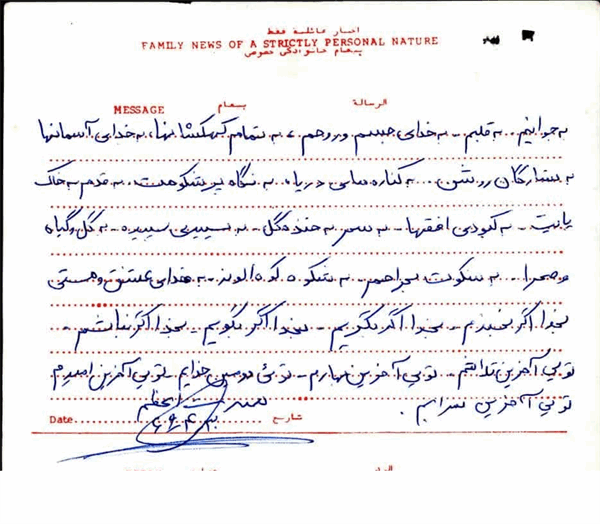 اخبار عائلية فقط
FAMILY NEWS OF A STRICTLY PERSONAL NATURE
پیغام خانوادگی خصوصی
MESSAGE پیغام الرسالة
به جوانیم.. به قلبم - به خدای جسم و روحم، به تمام کهکشانها، به خدای آسمانها
به ستارگان روشن.. به کناره های دریا، به نگاه پر شکوهت، به قدم به خاک
پایت - به کبودی افقها - به سحر به خنده گل - به سپیدی سپیده - به گل و گیاه
و صحرا - به سکوت به شکوه کوه الوند - به خدای عشق و هستی
بخدا اگر بمیرم - بخدا اگر نگریم - بخدا اگر نگویم - بخدا اگر نباشم -
تویی آخرین - تویی آخرین بهارم - تویی دومین خدایم - تویی آخرین امیدم
تویی آخرین سرابم.
Date تاریخ